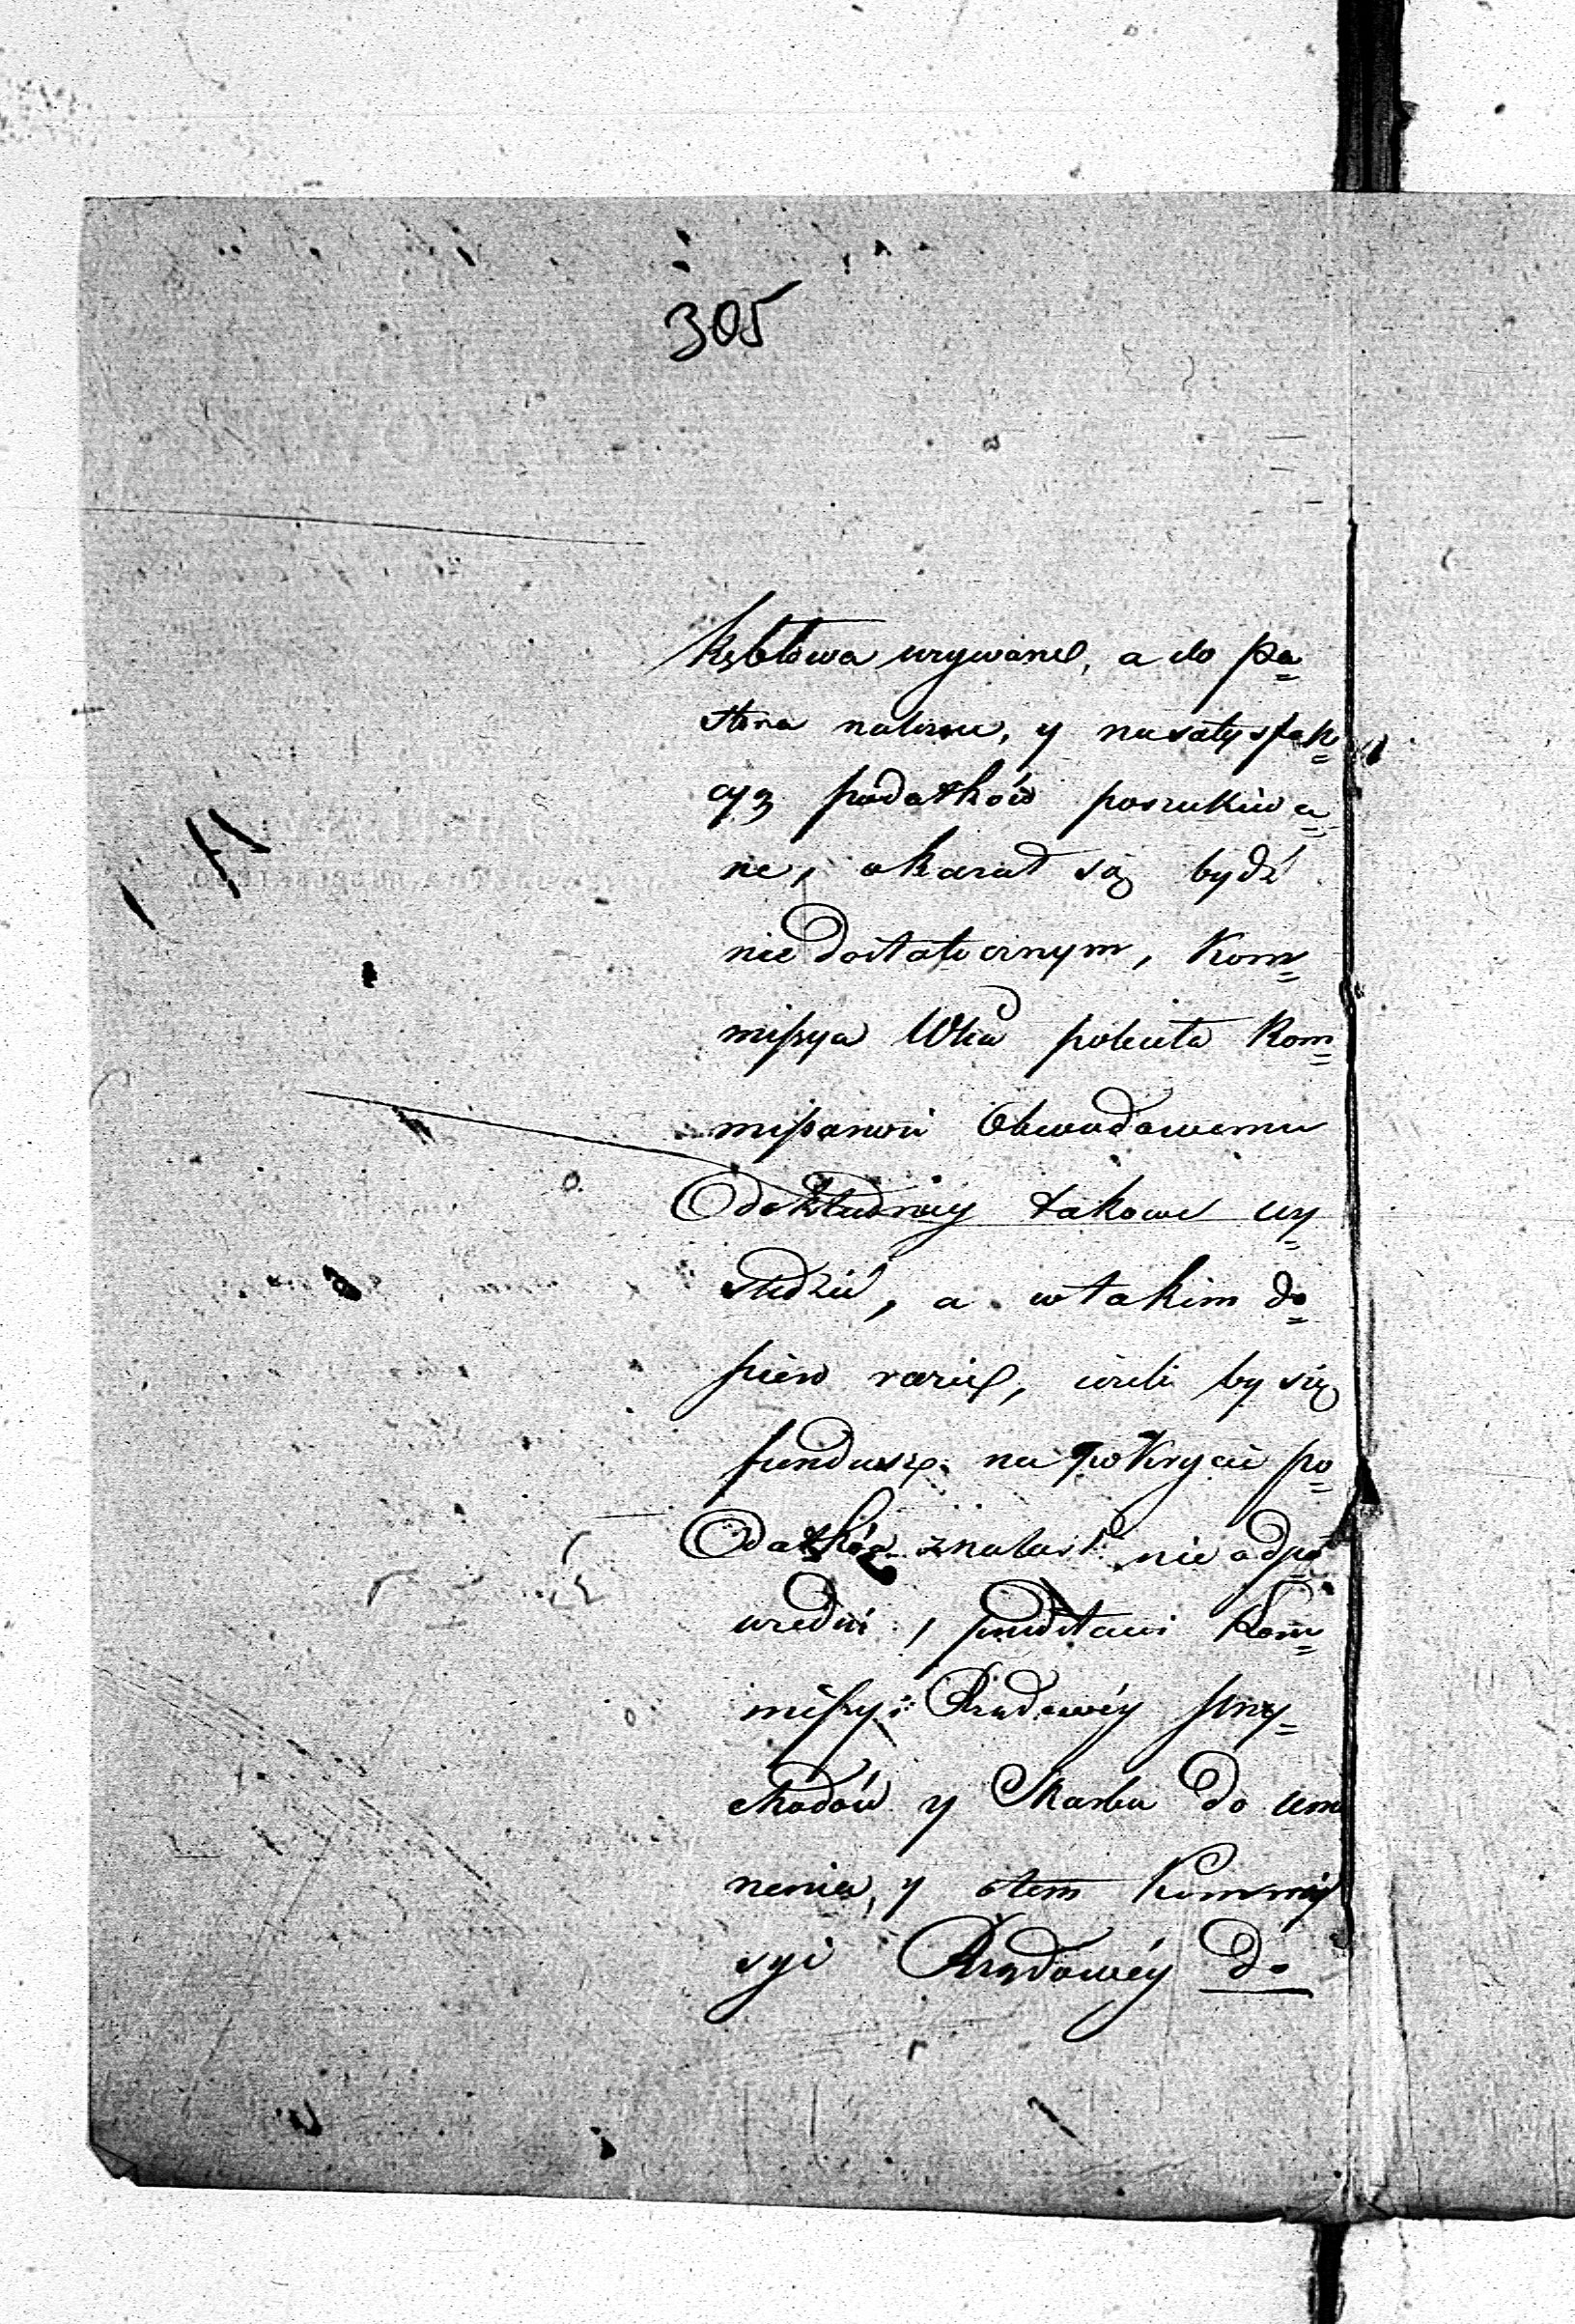 305
Kębłowa używane, a do pa=
stora należne, y na satysfak=
cyą podatków poszukiwa=
ne, okazał się bydź
niedostatecznym, Kom=
missya Wka poleciła Kom=
missarzowi Obwodowemu
dokładniey takowe wy=
śledzić, a w takim do=
piero razie, ieżeli by się
fundusz na pokrycie po=
datków znaleść nie odpo=
wiedni, przedstawi Kom=
missyi Rządowéy Przy=
chodów y Skarbu do umo
nenia, y otem Kommis
syi Rządowéy do